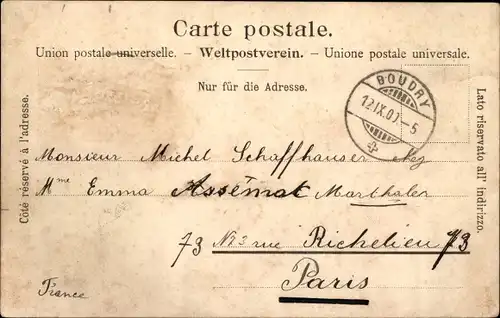 Carte postale.
Union postale universelle. – Weltpostverein. – Unione postale universale.
Nur für die Adresse.
Côté réservé à l'adresse.
Lato riservato all' indirizzo.
BOUDRY
12.IX.00.-5
Monsieur Michel Schaffhauser chez
Mme Emma Assémat Marthaler
73 No 3 rue Richelieu 73
Paris
France